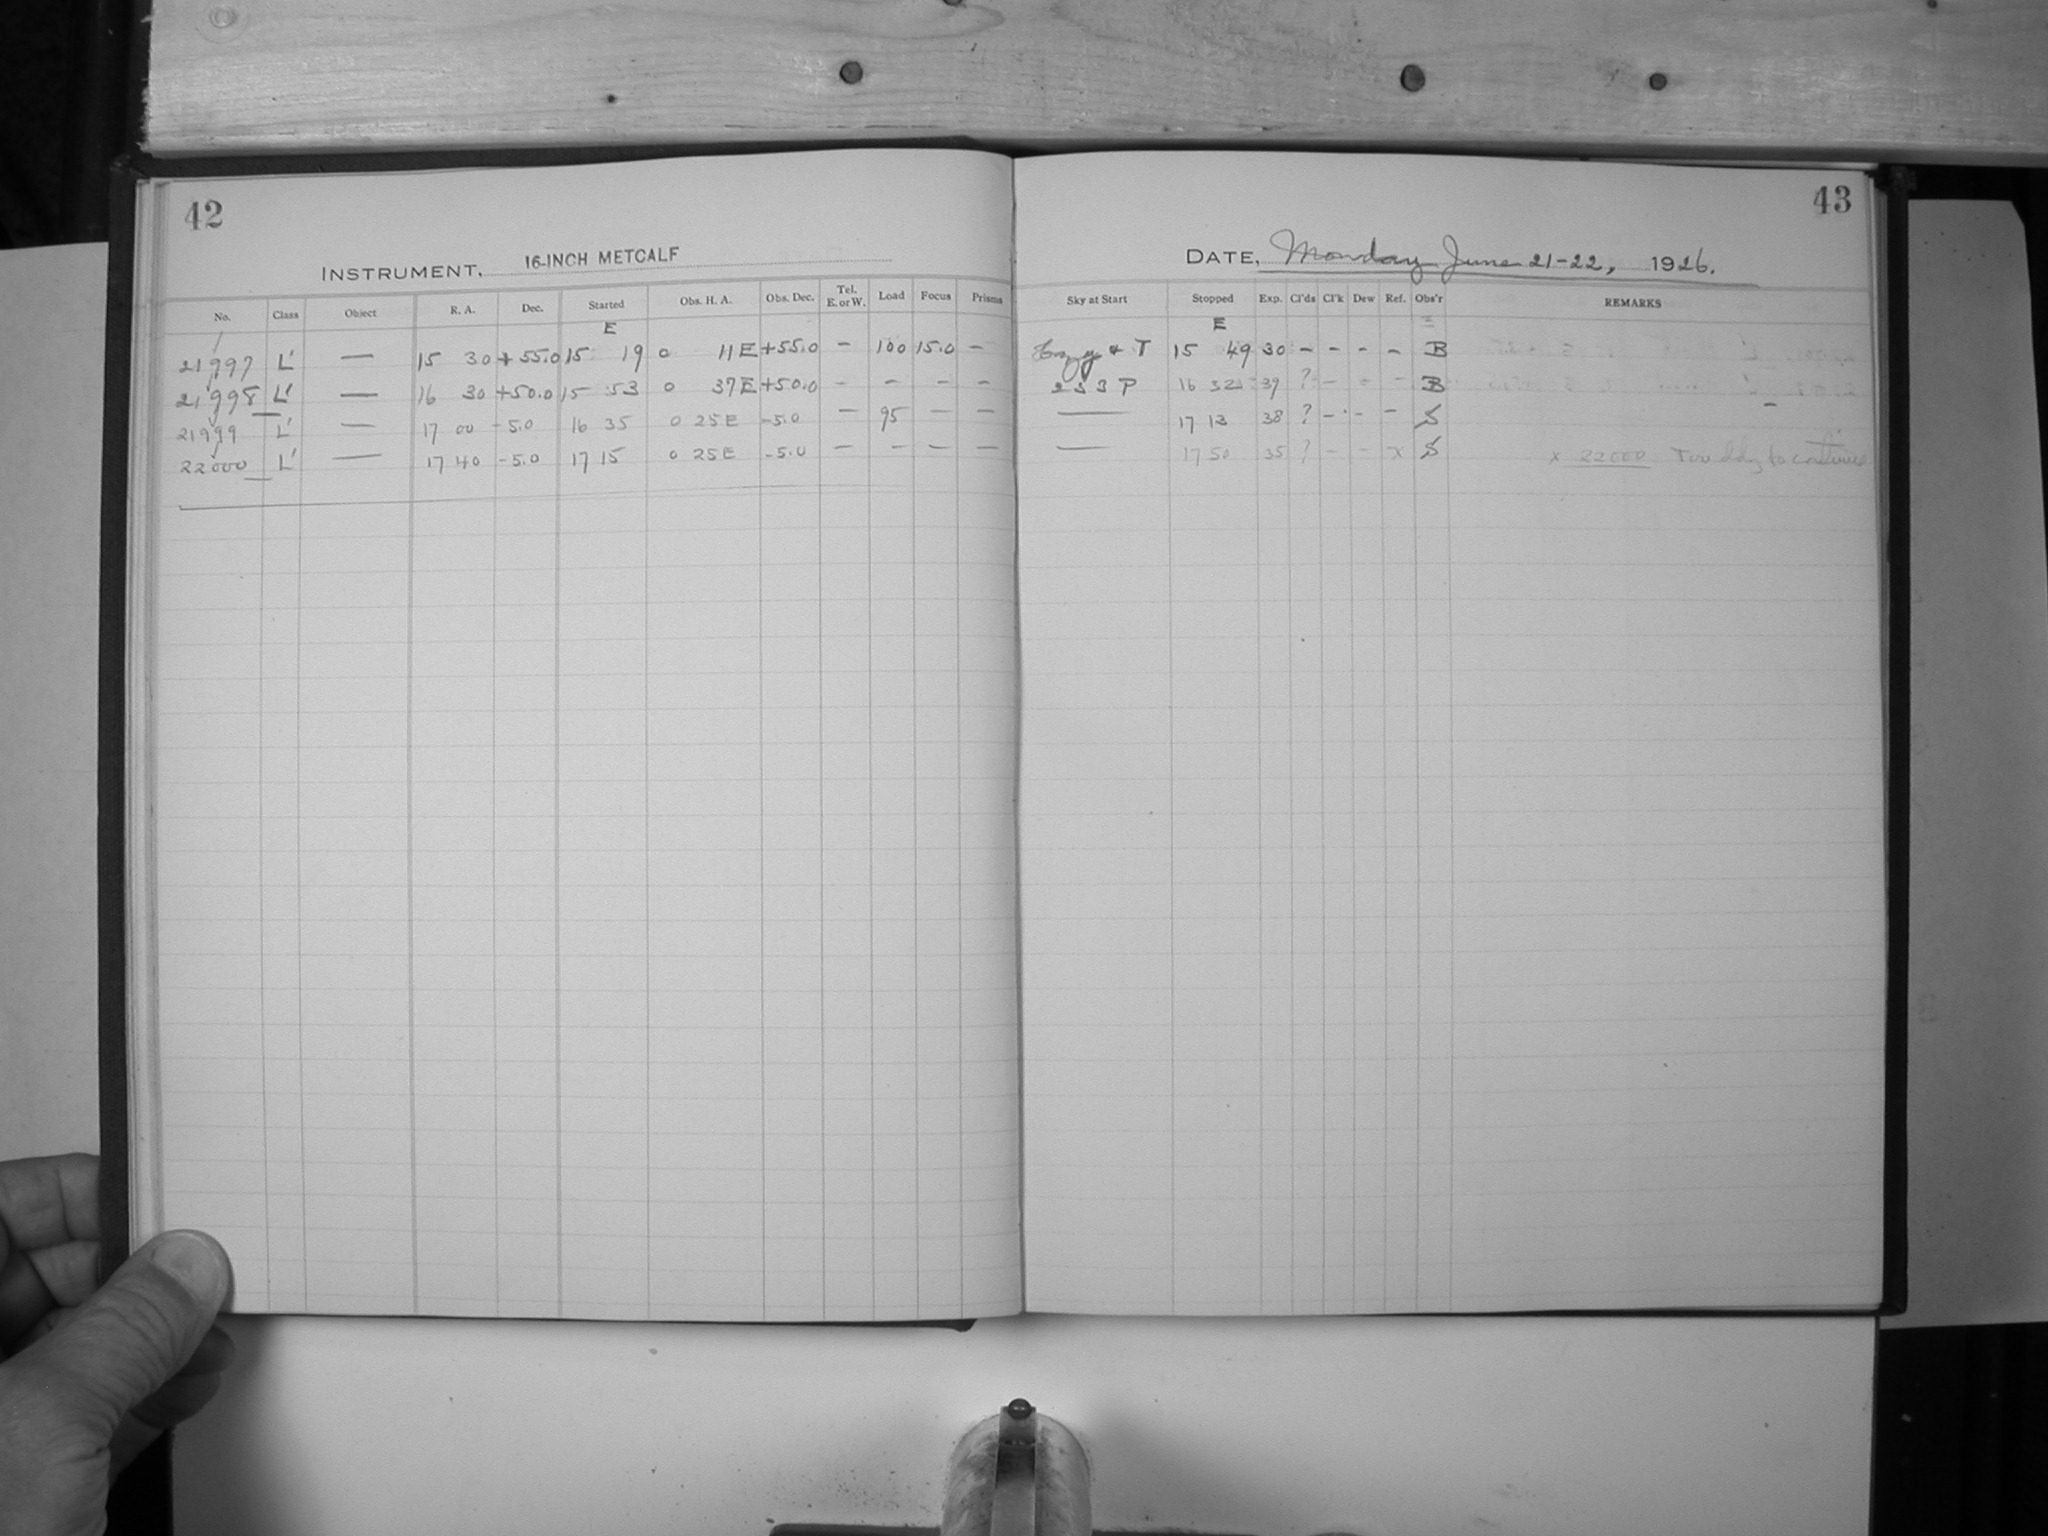 42
INSTRUMENT, 16-INCH METCALF
No. Class Object R. A. Dec. Started Obs. H. A. Obs. Dec. Tel. E. or W. Load Focus Prisms
E
21997 L' — 15 30 +55.0 15 19 0 11 E +55.0 – 100 15.0 –
21998 L' — 16 30 +50.0 15 53 0 37 E +50.0 – – – –
21999 L' — 17 00 -5.0 16 35 0 25 E -5.0 – 95 – –
22000 L' — 17 40 -5.0 17 15 0 25 E -5.0 – – – –
43
DATE, Monday June 21-22, 1926.
Sky at Start Stopped Exp. Cl'ds Cl'k Dew Ref. Obs'r REMARKS
E
Hazy & T 15 49 30 – – – – B
2 3 3 P 16 32 39 ? – – – B
— 17 13 38 ? – – – S
— 17 50 35 ? – – x S x 22000 to continue